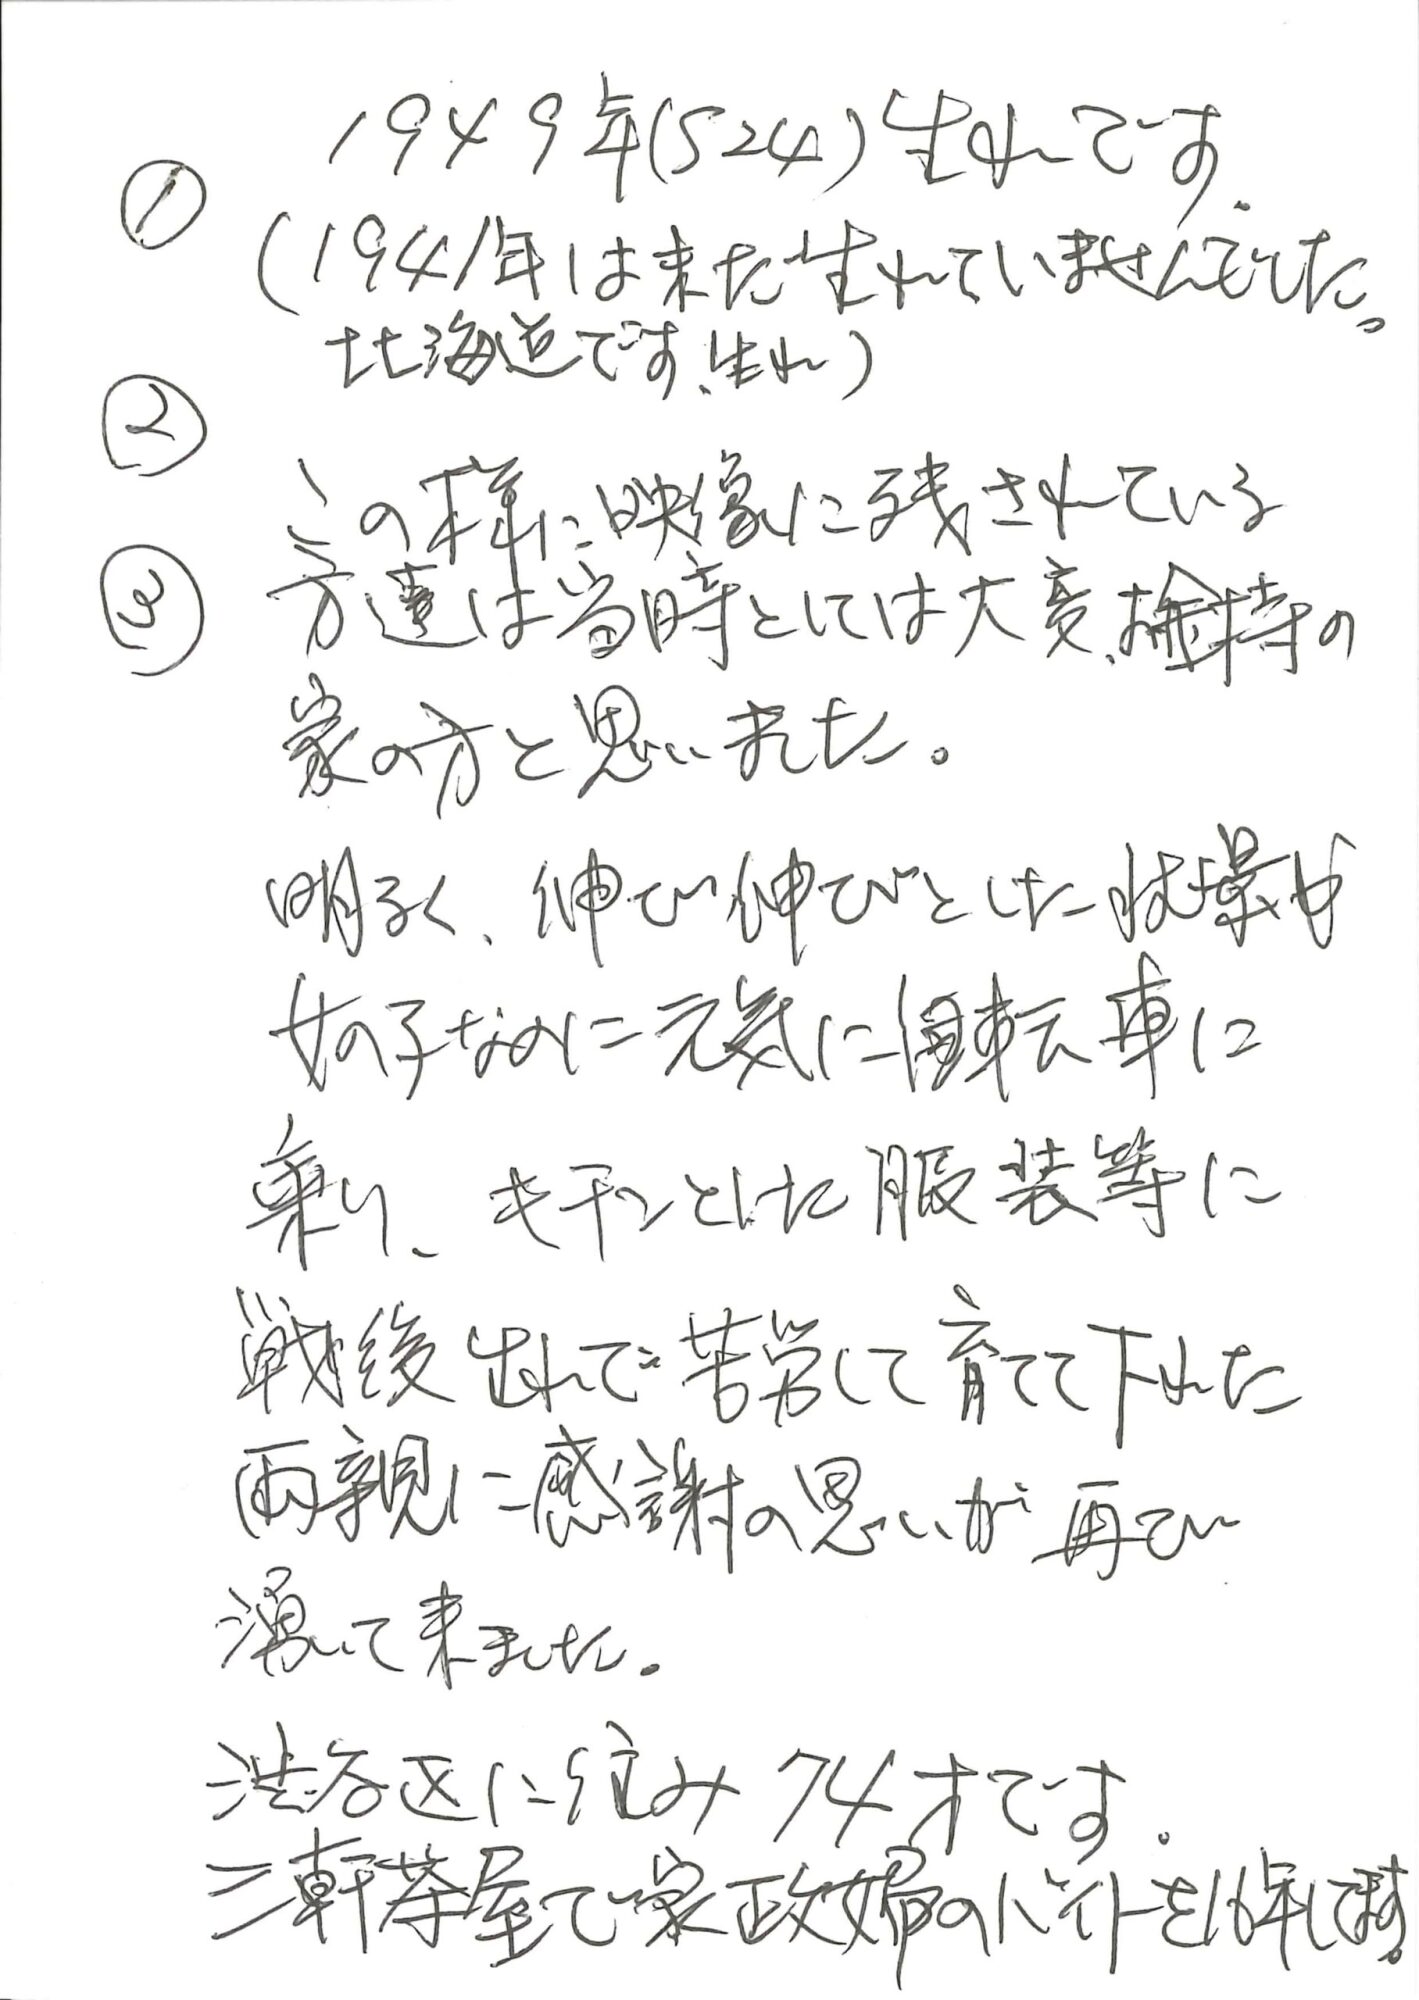 ①
1949年(S24)生れです.
(1941年は未だ生れていませんでした。
北海道です、生れ)
②
③
この様に映像に残されている
方達は当時としては大変、お金持の
家の方と思いました。
明るく、伸び伸びとした情景や
女の子なのに元気に自転車に
乗り、キチンとした服装等に
戦後生れで苦労して育てて下れた
両親に感謝の思いが再び
湧いて来ました。
渋谷区に住み74才です.
三軒茶屋で家政婦のバイトを16年してます。